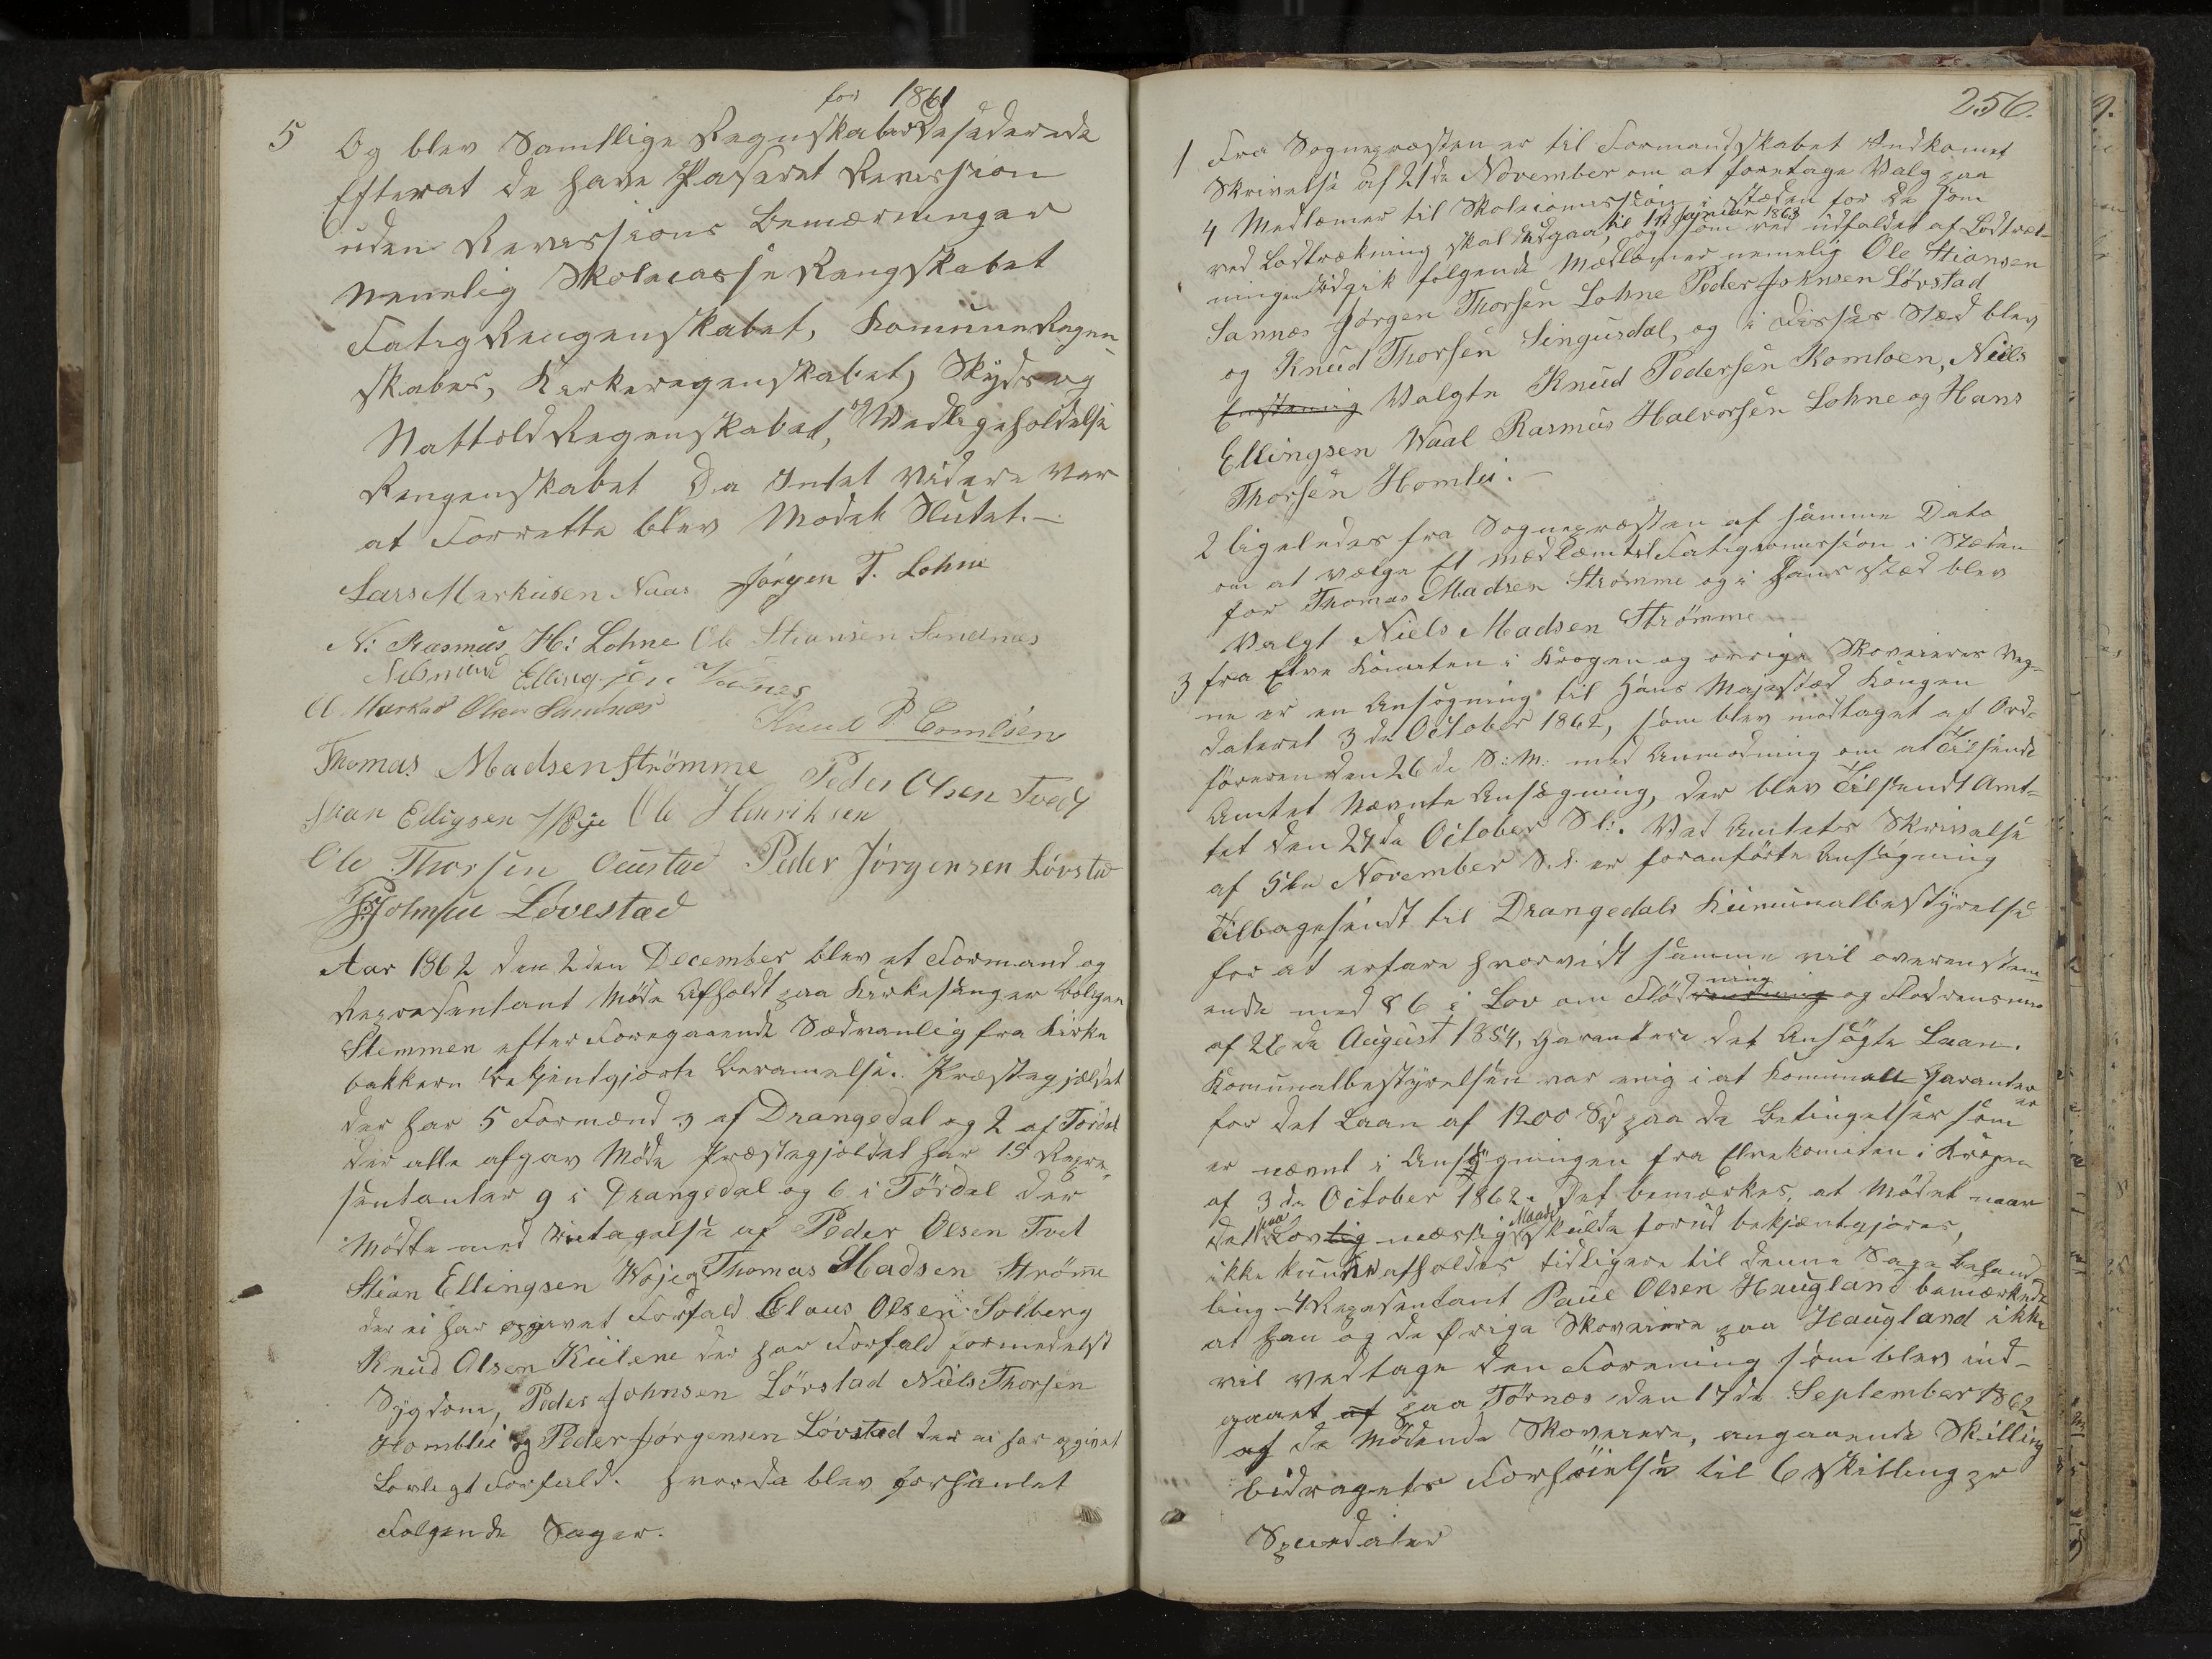 for 1861
5 Og blev Samtlige Regnskaber Desederede
Efterat de have Paseret Revession
uden Revessions bemærninger
nemelig Skolecasse Rengskabet
Fatig Rengenskabet, Kommune Regen-
skaber, Kerkeregenskabet, Skyds og
Nattold Regenskabet, og Vedligeholdelse
Rengenskabet Da Intet videre var
at Forrette blev Modet Slutet.-
Lars Markusen Naas Jörgen T. Lohne
N: Rasmus H: Lohne Ole Stiansen Sandnæs
Ellingsen
Markus Olsen Sandnæs
Knud P.
Thomas Madsen Strömme Peder Olsen Tvedt
Stian Elligsen Ole Henriksen
Ole Thorsen Peder Jörgensen Lövstad
P Johnsen Lovestad
Aar 1862 den 2den December blev et Formand og
Representant Möde Afholdt paa Kirkesanger boligen
Stemmen efter Foregaaende Sædvanlig fra Kirke
bakkern bekjentgjorte beramelse. Præstegjeldet
der har 5 Formænd 3 af Drangedal og 2 af Tördal
der alle afgav Möde Præstegjældet har 15 Repre-
sentanter 9 i Drangedal og 6 i Tördal der
mödte med untagelse af Peder Olsen Tvet
Stian Ellingsen Wöje og Thomas Madsen Ströme
der ei har opgivet Forfald Claus Olsen Solberg
Knud Olsen Kiilene der har Forfald formedelst
Sygdom, Peder Johnsen Lövstad Niels Thorsen
Homblei og Peder Jörgensen Lövstad der ei har opgivet
Lovligt Forfald. hvorda blev forhanlet
Folgende Sager.
256.
1 Fra Sognepræsten er til Formandskabet Indkomet
Skrivelse af 21de November om at foretage Valg paa
4 Medlemer til Skolecomissión i stæden for de som
til 1st Januar 1863
ved Lodtrækning skal udgaa, og som ved udfaldet af Lodtræk-
ningen udgik folgende Medlemer nemelig Ole Stiansen
Sannæs Jörgen Thorsen Lohne Peder Johnsen Lövstad
og Knud Thorsen Singusdal, og i disses Sted blev
Enstemig Valgte Knud Pedersen Komloen, Niels
Ellingsen Waal Rasmus Halvorsen Lohne og Hans
Thorsen Homlei.-
2 ligeledes fra Sognepræsten af samme Dato
om at vælge Et medlem til Fatigcomission i Stæden
for Thomas Madsen Strömme og i hans stæd blev
Valgt Niels Madsen Strömme
3 fra Elve Kometen i Krogen og övrige Skoveieres Veg-
ne er en Ansögning til Hans Majestæd Kongen
dateret 3de October 1862, som blev modtaget af Ord-
föreren den 26de S: M: med Anmodning om at Tilsende
Amtet Nævnte Ansögning, der blev Tilsendt Amt-
tet den 27de October S.A. Ved Amtets Skrivelse
af 5te November S.A. er foranförte Ansögning
Tilbagesendt til Drangedals Kumunalbestyrelse
for at erfare hvorvidt samme vil overenstem-
ning
ende med § 6 i Lov om Flöd og Flodrensning
af 28de August 1854, Garantere det Ansögte Laan.
Komunalbestyrelsen var enig i at Komunen Garanter
er
for det Laan af 1200 Sp paa de Betingelser som
er nævnt i Ansögningen fra Elvekometen i Krogen
af 3de October 1862. Det bemærkes, at Mödet naar
paa Maade
det Lovlig mæssig skulde forud bekjentgjöres,
ikke kunde afholdes tidligere til denne Sags behand
ling - 4 Representant Paul Olsen Haugland bemærkede
at han og de Övrige Skoveiere paa Haugland ikke
vil vedtage den Forening som blev ind-
gaaet af paa Törnæs den 17de September 1862
af de Mödende Skoveiere, angaaende Skilling
bidragets Forhöielse til 6 skilling pr
Speciedaler